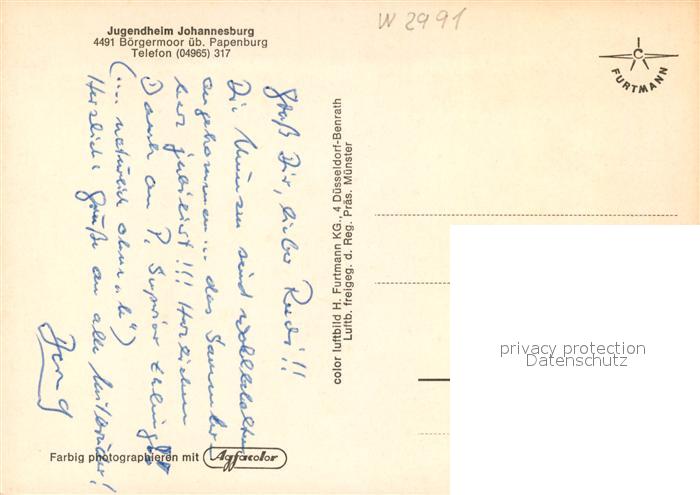 Jugendheim Johannesburg
4491 Börgermoor üb. Papenburg
Telefon (04965) 317
W 2991
FURTMANN
Grüß Dir, lieber Rudi!!
Die Münzen sind wohlbehalten
angekommen... das Sammler-
herz jubiliert!!! Herzlichen
Dank auch an P. Superior
(... natürlich ohne „h")
Herzliche Grüße an alle Mitbrüder!
Bernd
color luftbild H. Furtmann KG., 4 Düsseldorf-Benrath
Luftb. freigeg. d. Reg. Präs. Münster
privacy protection
Datenschutz
Farbig photographieren mit Agfacolor